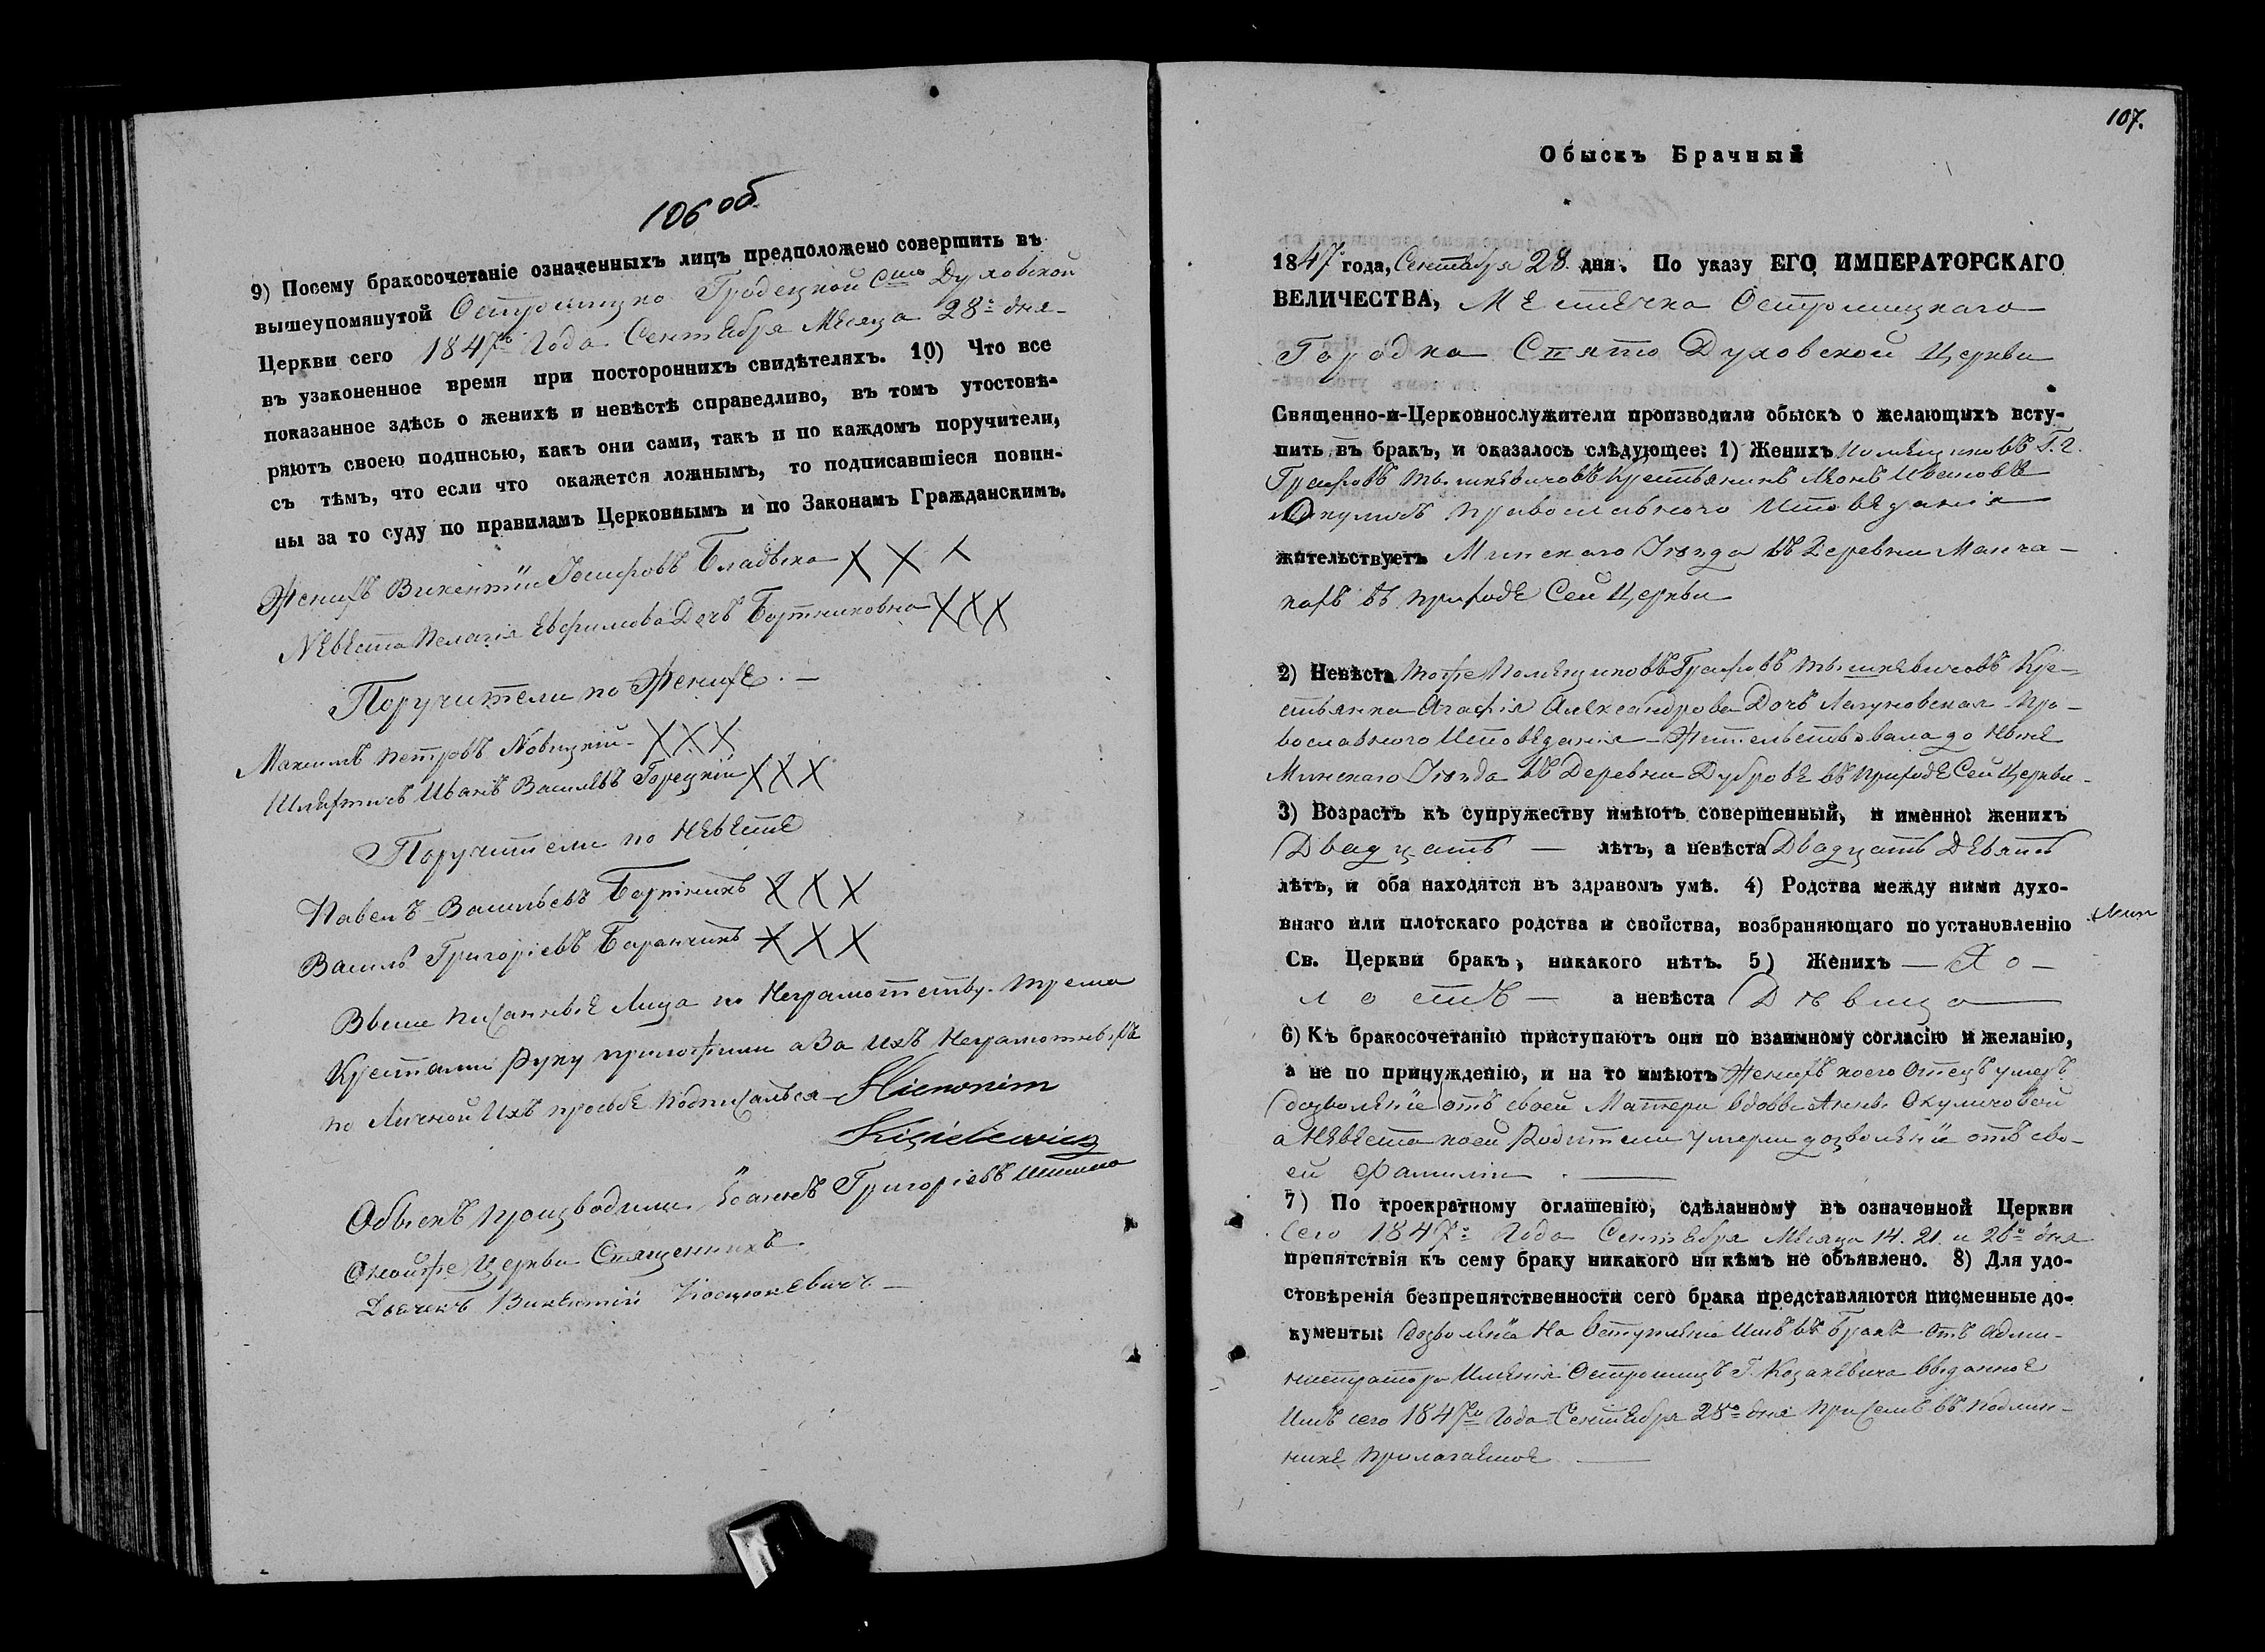 106 об
9) Посему бракосочетаніе означенныхъ лицъ предположено совершить въ
вышеупомянутой Остромицко Гродецкой Духовской
Церкви сего 1847 Года Сентебря Месяца 28 дня
въ узаконенное время при постороннихъ свидѣтеляхъ. 10) Что все
показанное здѣсь о женихѣ и невѣстѣ справедливо, въ томъ утостовѣ-
ряютъ своею подписью, какъ они сами, такъ и по каждомъ поручители,
съ тѣмъ, что если что окажется ложнымъ, то подписавшіеся повин-
ны за то суду по правиламъ Церковнымъ и по Законамъ Гражданскимъ.
Женихъ Викентіи Іосифовъ X X X
Невеста Пелагія Евфимова Дочъ Бортниковна X X X
Поручители по Женихе
Максимъ Петровъ Новицкій X X X
Шляхтичъ Иванъ Васильевъ Горецкій X X X
Поручители по Невесте
Павелъ Васильевъ Бортникъ X X X
Василь Григоріевъ Баранчикъ X X X
Выше писанные Лица по Неграмотству трема
Крестами руку приложили а За ихъ Неграмотныхъ
по Личной Ихъ прозбе подписалься Hieronim
Kisielewicz
Обыскъ производили Іоаннъ Григоріевъ
Оной же Церкви Священникъ
Дьячекъ Викентій
107.
Обыскъ Брачный
1847 года, Сентебря 28 дня. По указу ЕГО ИМПЕРАТОРСКАГО
ВЕЛИЧЕСТВА, Местечка Остромицкаго
Городка Свято Духовской Церкви
Священно-и-Церковнослужители производили обыскъ о желающихъ всту-
пить въ бракъ, и оказалось слѣдующее: 1) Женихъ Помещиковъ Г. Г.
Графовъ Тышкевичовъ Крестьянинъ Леонъ Ивановъ
Окуличъ Православного Исповеданія
жительствуетъ Минскаго Уезда въ Деревни
въ приходе Сей Церкви
2) Невѣста Тоже Помещиковъ Графовъ Тышкевичовъ Кре-
стьянка Агафія Александрова Дочъ Лагуновская Пра-
вославного Исповеданія Жительствовала до Ныне
Минскаго Уезда въ Деревни Дуброве въ приходе Сей Церкви
3) Возрастъ къ супружеству имѣютъ совершенный, и именно: женихъ
Двадцать — лѣтъ, а невѣста Двадцать Девять
лѣтъ, и оба находятся въ здравомъ умѣ. 4) Родства между ними духо-
внаго или плотскаго родства и свойства, возбраняющаго по установленію
Св. Церкви бракъ, никакого нѣтъ. 5) Женихъ — Хо-
лостъ — а невѣста Девица
6) Къ бракосочетанію приступаютъ они по взаимному согласію и желанію,
а не по принужденію, и на то имѣютъ Женихъ коего Отецъ умеръ
дозволеніе отъ своей Матери Вдовы Анны Окуличовой
а Невеста коей Родители умерли дозволеніе отъ сво-
ей Фамиліи
7) По троекратному оглашенію, сдѣланному въ означенной Церкви
сего 1847 Года Сентебря Месяца 14. 21 и 26 дня
препятствія къ сему браку никакого ни кѣмъ не объявлено. 8) Для удо-
стовѣренія безпрепятственности сего брака представляются писменные до-
кументы: Дозволеніе На Вступленіе Имъ въ бракъ Отъ Адми-
нистратора Именія Остромицъ Г. Козакевича выданное
Имъ сего 1847 Года Сентебря 28 дня при семъ въ подлин-
нике прилагаемое